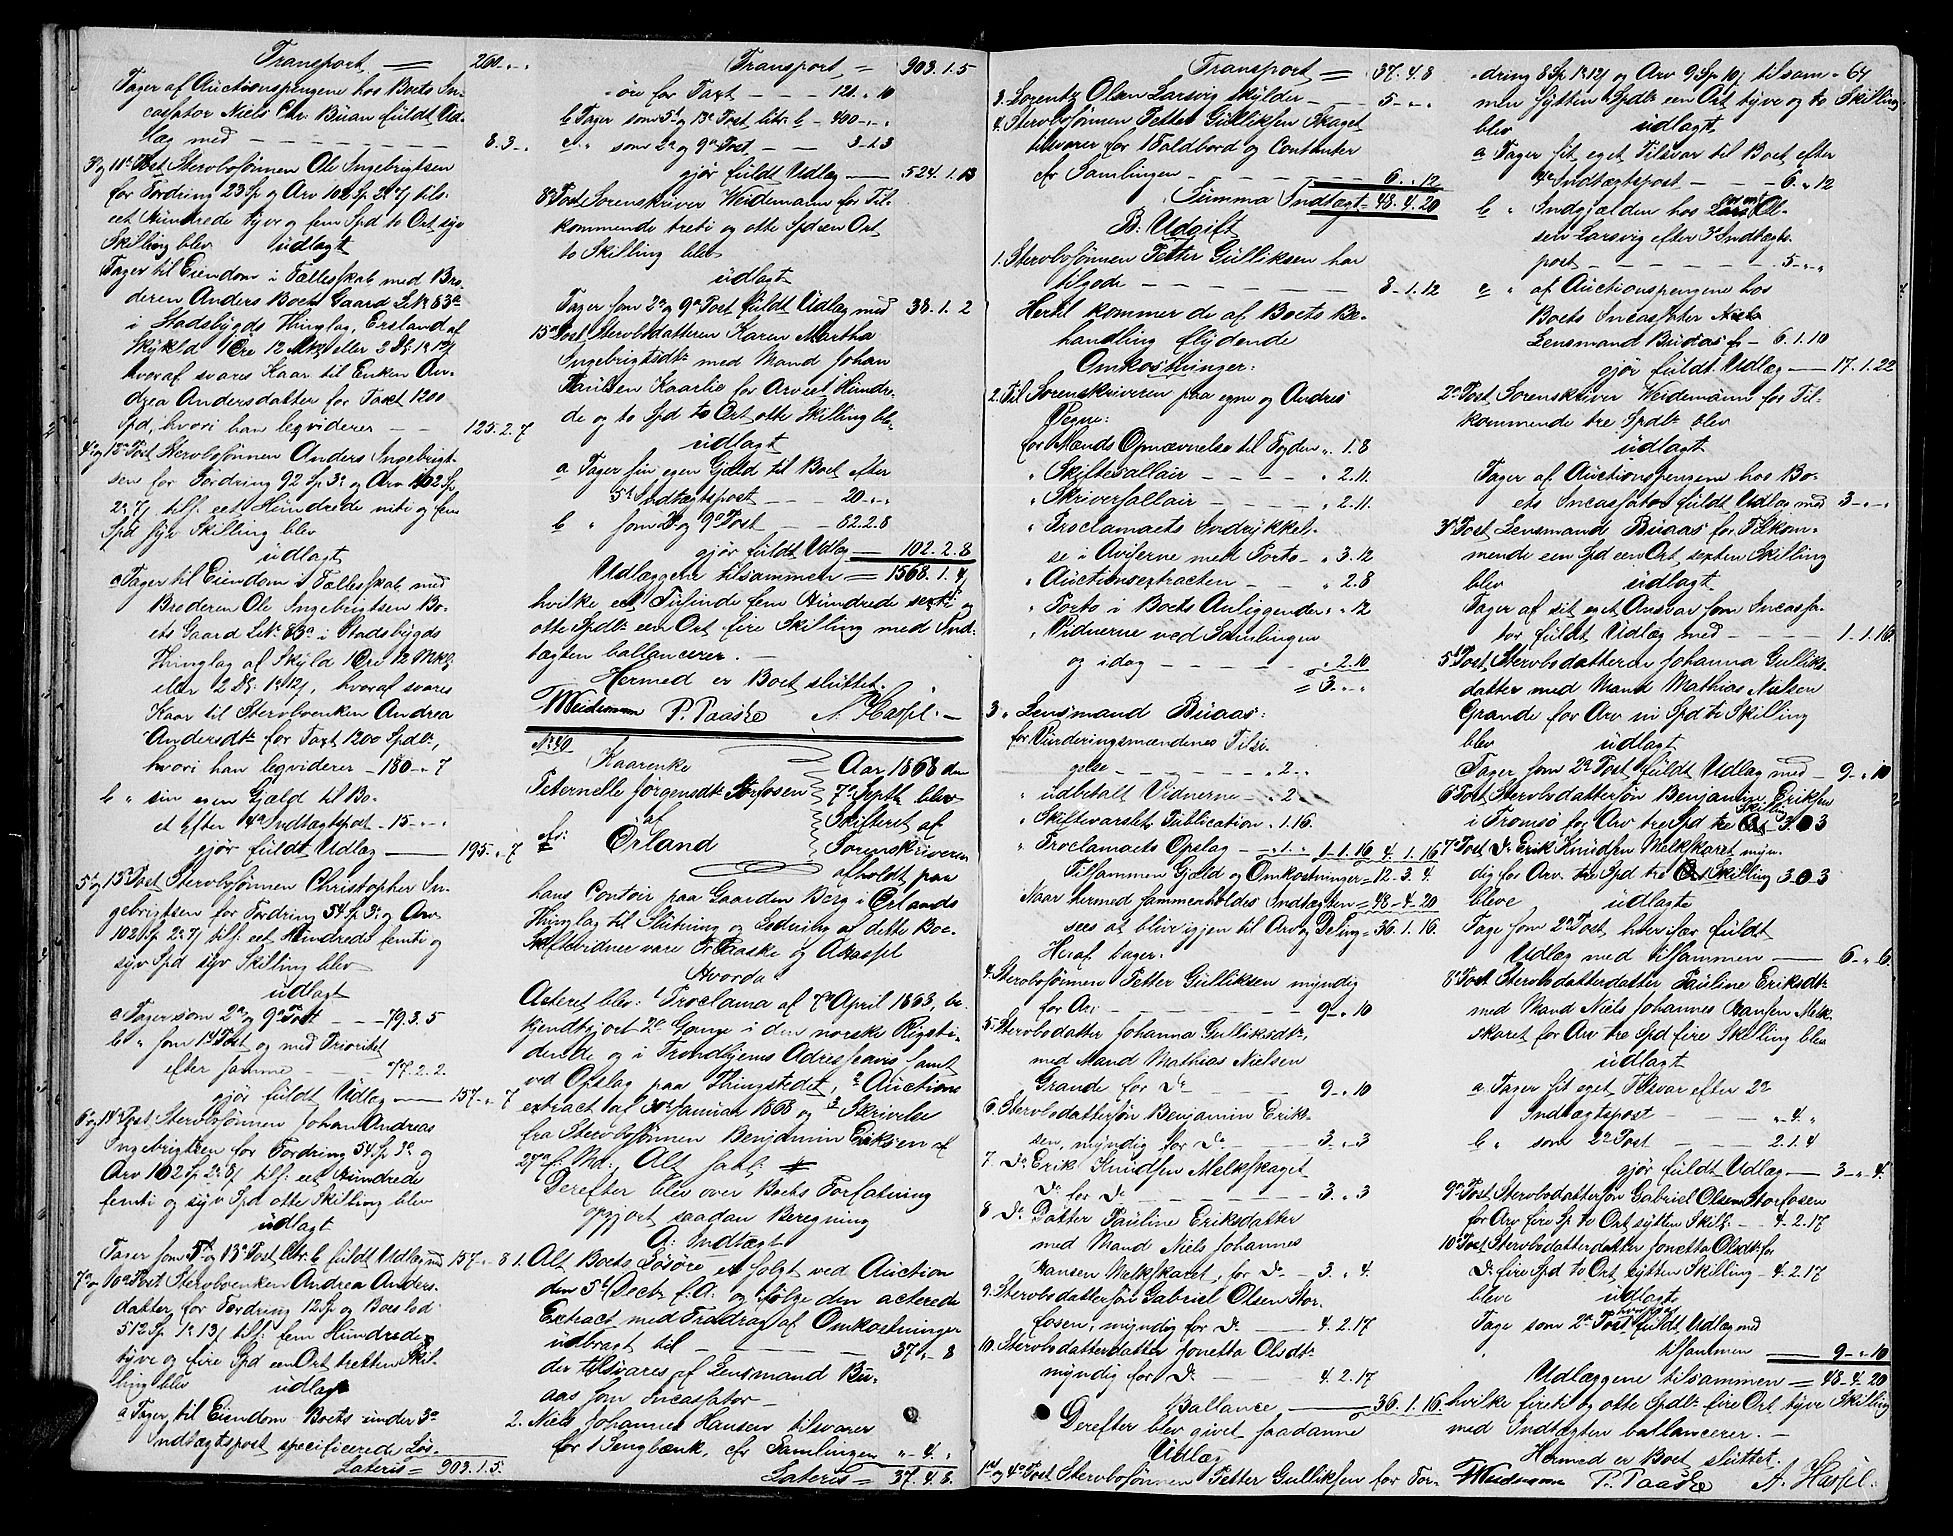 Transport, = 260 „ „
Tager af Auctionspengene hos Boets In-
casator Niels Chr. Büan füldt Ud-
læg med - - - 8. 3 - „
3die og 11te Post Stervbosønnen Ole Ingebrigtsen
for Fordring 23 Sp og Arv 102 Sp. 2. 7 s tils:
eet Hündrede tyve og fem Spd to Ort syv
Skilling blev udlagt
Tager til Eiendom i Fælleskab med Bro-
deren Anders Boets Gaard L.Nr 83a
i Stadsbygds Thinglag, Ersland af
Skyld 1 Øre 12 Mkl eller 2 Dl: 1. 12 s
hvoraf svares Kaar til Enken An-
drea Andersdatter for Taxt 1200
Spd, hvori han leqviderer - - 125. 2. 7
4de og 15de Post Stervbosønnen Anders Ingebrigt-
sen for Fordring 92 Sp. 3 og Arv 102 Sp
2. 7 s tils: eet Hündrede niti og fem
Spd syv Skilling blev
udlagt
a Tager til Eiendom i Fælleskab med
Broderen Ole Ingebrigtsen Bo-
ets Gaard L.Nr 83a i Stadsbygds
Thinglag af Skyld 1 Øre 12 Mkl
eller 2 Dl: 1. 12 s, hvoraf svares
Kaar til Stervboenken Andrea
Andersdt. for Taxt 1200 Spdlr,
hvori han leqviderer - 180 - „ 7
b „ sin egen Gjæld til Bo-
et efter 4de Indtægtspost - 15 - „ - „
gjør füldt Udlæg — 195. „ 7
5te og 15de Post Stervbosønnen Christopher In-
gebrigtsen for Fordring 54 Sp. 3 og Arv
102 Sp. 2. 7 s tils: eet Hündrede femti og
syv Spd syv Skilling blev
udlagt
a Tager som 2den og 9de Post - - - 79. 3. 5
b „ som 1ste Post og med Prioritet
efter samme - - - 77. 2. 2.
gjør füldt Udlæg — 157. „ 7
6te og 14de Post Stervbosønnen Johan Andreas
Ingebrigtsen for Fordring 54 Sp. 3 og
Arv 102 Sp. 2. 8 s tils: eet Hündrede
femti og syv Spd otte Skilling blev
udlagt
Tager som 5te og 13de Post Litr: b füldt Udlæg med 157. „ 8
7de og 10de Post Stervboenken Andrea Anders-
datter for Fordring 12 Sp og Boeslod
512 Sp. 1. 13 s tils: fem Hündrede
tyve og fire Spd een Ort tretten Skil-
ling blev udlagt
a Tager til Eiendom Boets under 3die
Indtægtspost specificerede Løs-
Lateris = 903. 1. 5.
Transport, = 903. 1. 5
øre for Taxt - - - 120. „ 10
b Tager som 5te og 13de Post litr: b - 400 - „ - „
c „ som 2den og 9de Post - - 3. „ 3
gjør füldt Udlæg — 524. 1. 13
8de Post Sorenskriver Weidemann for Til-
kommende treti og otte Spd een Ort
to Skilling blev
udlagt
Tager som 2den og 9de Post füldt Udlæg med 38. 1. 2
15de Post Stervbodatteren Karen Martha
Ingebrigtsdt. med Mand Johan
Paulsen Kaarlie for Arv eet Hündre-
de og to Spd to Ort otte Skilling ble-
udlagt
a Tager sin egen Gjæld til Boet efter
5te Indtægtspost - - - 20. „. „
b „ som 2den og 9de Post - - 82. 2. 8
gjør füldt Udlæg — 102. 2. 8
Udlæggene tilsammen = 1568. 1. 4 s
hvilke eet Tüsinde fem Hündrede sexti og
otte Spdlr een Ort fire Skilling med Ind-
tægten ballancerer. -
Hermed er Boet slüttet.
TWeidemann P. Paaske A. Hassel. -
No 40
Kaarenke
Peternelle Jørgensdt. Storfosen
af
Ørland
Aar 1868 den
7de Septbr blev
Skifteret af
Sorenskriveren
afholdt paa
hans Contoir paa Gaarden Berg i Ørlands
Thinglag til Slütning og Lodning af dette Boe.
Skiftevidner vare P. Paaske og A. Hassel
Hvorda
Acteret blev: 1 Proclama af 7de April 1863, be-
kjendtgjort 2de Gange i den norske Rigsti-
dende og i Trondhjems Adresseavis samt
ved Opslag paa Thingstedet, 2 Auctions
extract af 30te Januar 1868 og 3 Skrivelse
fra Stervbosønnen Benjamin Eriksen af
27de f: Md:. Alt saal:
Derefter blev over Boets Forfatning
opgjort saadan Beregning
A: Indtægt
1. Alt Boets Løsøre er solgt ved Auction
den 5te Decbr f. A. og ifølge den acterede
Extract med Fradrag af Omkostninger
udbragt til - - - 37. „ 8
der tilsvares af Lensmand Bü-
aas som Incassator -
2. Niels Johannes Hansen tilsvarer
for 1 Sengbænk, cfr Samlingen „ . 4. „
Lateris = 37. 4. 8.
Transport = 37. 4. 8
3. Lorentz Olsen Larsvig skylder - - - 5 - „. „
4. Stervbosønnen Petter Gülliksen Skaget
tilsvarer for 1 Foldbord og Contanter
cfr Samlingen - - - 6. „ 12
Summa Indtægt = 48. 4. 20
B: Udgift
1. Stervbosønnen Petter Gülliksen har
tilgode - - - 8. 1. 12
Hertil kommer de af Boets Be-
handling flydende
Omkostninger:
2. Til Sorenskriveren paa egne og Andres
Vegne:
for Mænds Opnævnelse til Fogden „. 1. 8
„ Skiftesallair - - - „ 2. 11.
„ Skriversallair - - - „ 2. 11.
„ Proclamaets Indrykkel-
se i Aviserne med Porto - „ 3. 12
„ Auctionsextracten - - „ 2. 8
„ Porto i Boets Anliggender „. „ 12
„ Vidnerne ved Samlingen
og idag - - - „. 2. 10
= 3. „. „
3 „ Lensmand Büaas:
for Vurderingsmændenes Tilsi-
gelse - - - „ 2. „
„ udbetalt Vidnerne - „. 2 „
„ Skiftevarslets Publication „. 1. 16.
„ Proclamaets Opslag - „. 1. „ 1. 1. 16 4. 1. 16
Tilsammen Gjæld og Omkostninger = 12. 3. 4
Naar hermed sammenholdes Indtægten = 48. 4. 20
sees at blive igjen til Arv og Deling = 36. 1. 16.
Heraf tager:
4. Stervbosønnen Petter Gülliksen myndig
for Arv - - - 9. „ 10
5. Stervbodatter Johanna Gulliksdtr.
med Mand Mathias Nielsen
Grande for Do - - - 9. „ 10
6. Stervbodattersøn Benjamin Erik-
sen, myndig for Do - - 3. „ 3
7. Do Erik Knudsen Melkskaget
Do for Do - - - 3. „ 3
8 Do Datter Pauline Eriksdatter
med Mand Niels Johannes
Hansen Melkskaret, for Do - 3. „ 4.
9. Stervbodattersøn Gabriel Olsen Stor-
fosen, myndig for Do — 4. 2. 17
10. Stervbodatterdatter Jonetta Olsdtr
myndig for Do - - 4. 2. 17
Ballance — 36. 1. 16.
Derefter blev givet saadanne
Udlæg
1ste og 4de Post Stervbosønnen Petter Gulliksen for For-
dring 8 Sp 1. 12 s og Arv 9 Sp 10 s tilsam- 64
men sytten Spdlr een Ort tyve og to Skilling
blev udlagt
a Tager sit eget Tilsvar til Boet efter
4de Indtægtspost - - - 6. „ 12
b „ Indgjælden hos Lorentz Ol-
sen Larsvig efter 3die Indtægts-
post - - - 5 - „. „
c „ af Auctionspengene hos
Boets Incassator
Lensmand Büaas - 6. 1. 10
gjør füldt Udlæg — 17. 1. 22
2den Post Sorenskriver Weidemann for Til-
kommende tre Spdlr blev
udlagt
Tager af Auctionspengene hos Bo-
ets Incassator füldt Udlæg med 3 - „ - „
3die Post Lensmand Büaas for Tilkom-
mende een Spd een Ort sexten Skilling
blev udlagt
Tager af sit eget Ansvar som Incassa-
tor füldt Udlæg med - - - 1. 1. 16
5te Post Stervbodatteren Johanna Gulliks-
datter med Mand Mathias Nielsen
Grande for Arv ni Spd ti Skilling
blev udlagt
Tager som 2den Post füldt Udlæg med - 9. „ 10
6te Post Stervbodattersøn Benjamin Eriksen
i Tromsø for Arv tre Spd tre Skilling 3. 0 3
7de Post Do Erik Knudsen Melkskaret myn-
dig for Arv tre Spd tre Skilling 3 0 3
bleve udlagte
Tage som 2den Post hver især füldt
Udlæg med tilsammen — 6 - „ 6
8de Post Stervbodatterdatter Pauline Eriksdtr
med Mand Niels Johannes Hansen Melk-
skaret for Arv tre Spd fire Skilling blev
udlagt
a Tager sit eget Tilsvar efter 2den
Indtægtspost - - - „. 4. „
b „ som 2den Post - - 2. 1. 4
gjør füldt Udlæg — 3 - „ 4.
9de Post Stervbodattersøn Gabriel Olsen Storfosen
for Arv fire Sp to Ort sytten Skill: - - 4. 2. 17
10de Post Stervbodatterdatter Jonetta Olsdtr for
Do fire Spd to Ort sytten Skilling - 4. 2. 17
bleve udlagt
Tage som 2den Post hver især füldt Udlæg med
tilsammen — 9. „ 10
Udlæggene tilsammen = 48. 4. 20
hvilke fireti og otte Spdlr fire Ort tyve Skilling
med Indtægten ballancerer. -
Hermed er Boet slüttet.
TWeidemann P. Paaske A. Hassel.